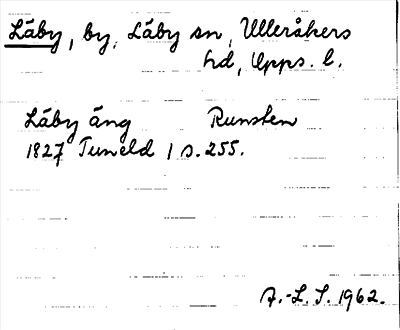 Läby, by, Läby sn, Ulleråkers
hd, Upps. l.
Läby äng Runsten
1827 Tuneld I s. 255.
A.-L. S. 1962.